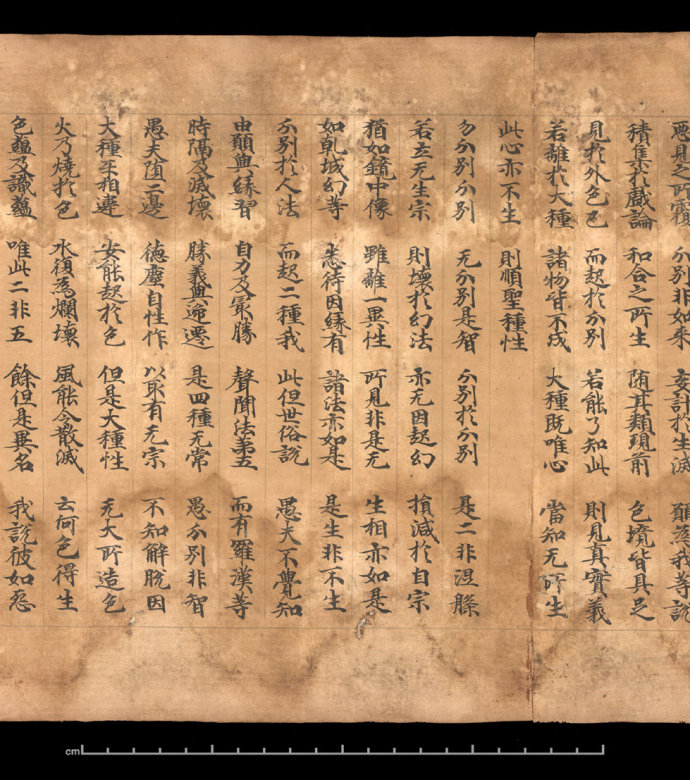 惡見之所覆 分別非如來 妄計於生滅 願為我等說
積集於戲論 和合之所生 随其類現前 色境皆具足
見於外色已 而起於分別 若能了知此 則見真實義
若離於大種 諸物皆不成 大種既唯心 當知无所生
此心亦不生 則順聖種性
勿分別分別 无分別是智 分別於分別 是二非涅槃
若立无生宗 則壞於幻法 亦无因起幻 損減於自宗
猶如鏡中像 雖離一異性 所見非是无 生相亦如是
如乹城幻等 悉待因緣有 諸法亦如是 是生非不生
分別於人法 而起二種我 此但世俗說 愚夫不覺知
由願與緣習 自力及最勝 聲聞法第五 而有羅漢等
時隔及滅壞 勝義與遞遷 是四種无常 愚分別非智
愚夫墮二邊 德塵自性作 以取有无宗 不知解脫因
大種互相違 安能起於色 但是大種性 无大所造色
火乃燒於色 水復為爛壞 風能令散滅 云何色得生
色蘊及識蘊 唯此二非五 餘但是異名 我說彼如怨
cm